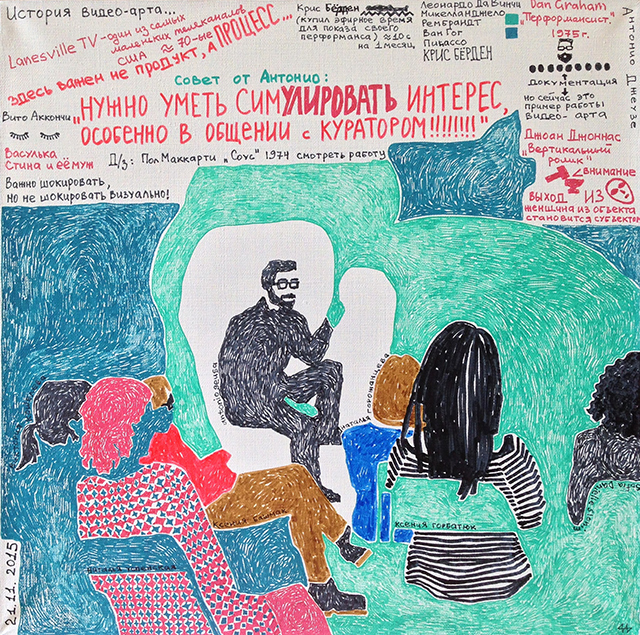 История видео-арта...
Lanesville TV - один из самых
маленьких телеканалов
США ≈ 70-ые
здесь важен не продукт, а ПРОЦЕСС...
Вито Аккончи
Васулька
Стина и её муж
Важно шокировать,
но не шокировать визуально!
Крис Бёрден
(купил эфирное время
для показа своего
перформанса) ≈ 10 с
на 1 месяц.
Леонардо Да Винчи
Микелланджело
Рембрандт
Ван Гог
Пикассо
КРИС БЕРДЕН
Dan Graham
"Перформансист"
1975г.
документация
но сейчас это
пример работы
видео-арта
Антонио Джеузе
Совет от Антонио:
„НУЖНО УМЕТЬ СИМУЛИРОВАТЬ ИНТЕРЕС,
ОСОБЕННО В ОБЩЕНИИ с КУРАТОРОМ!!!!!!!!"
Д/з: Пол Маккарти „Соус" 1974 смотреть работу
Джоан Джонас
„Вертикальный
ролик"
внимание
ВЫХОД ИЗ
женщина из объекта
становится субъектом
antonio geusa
наталья горожанцева
ксения
ксения горбатюк
наталья
21.11.2015